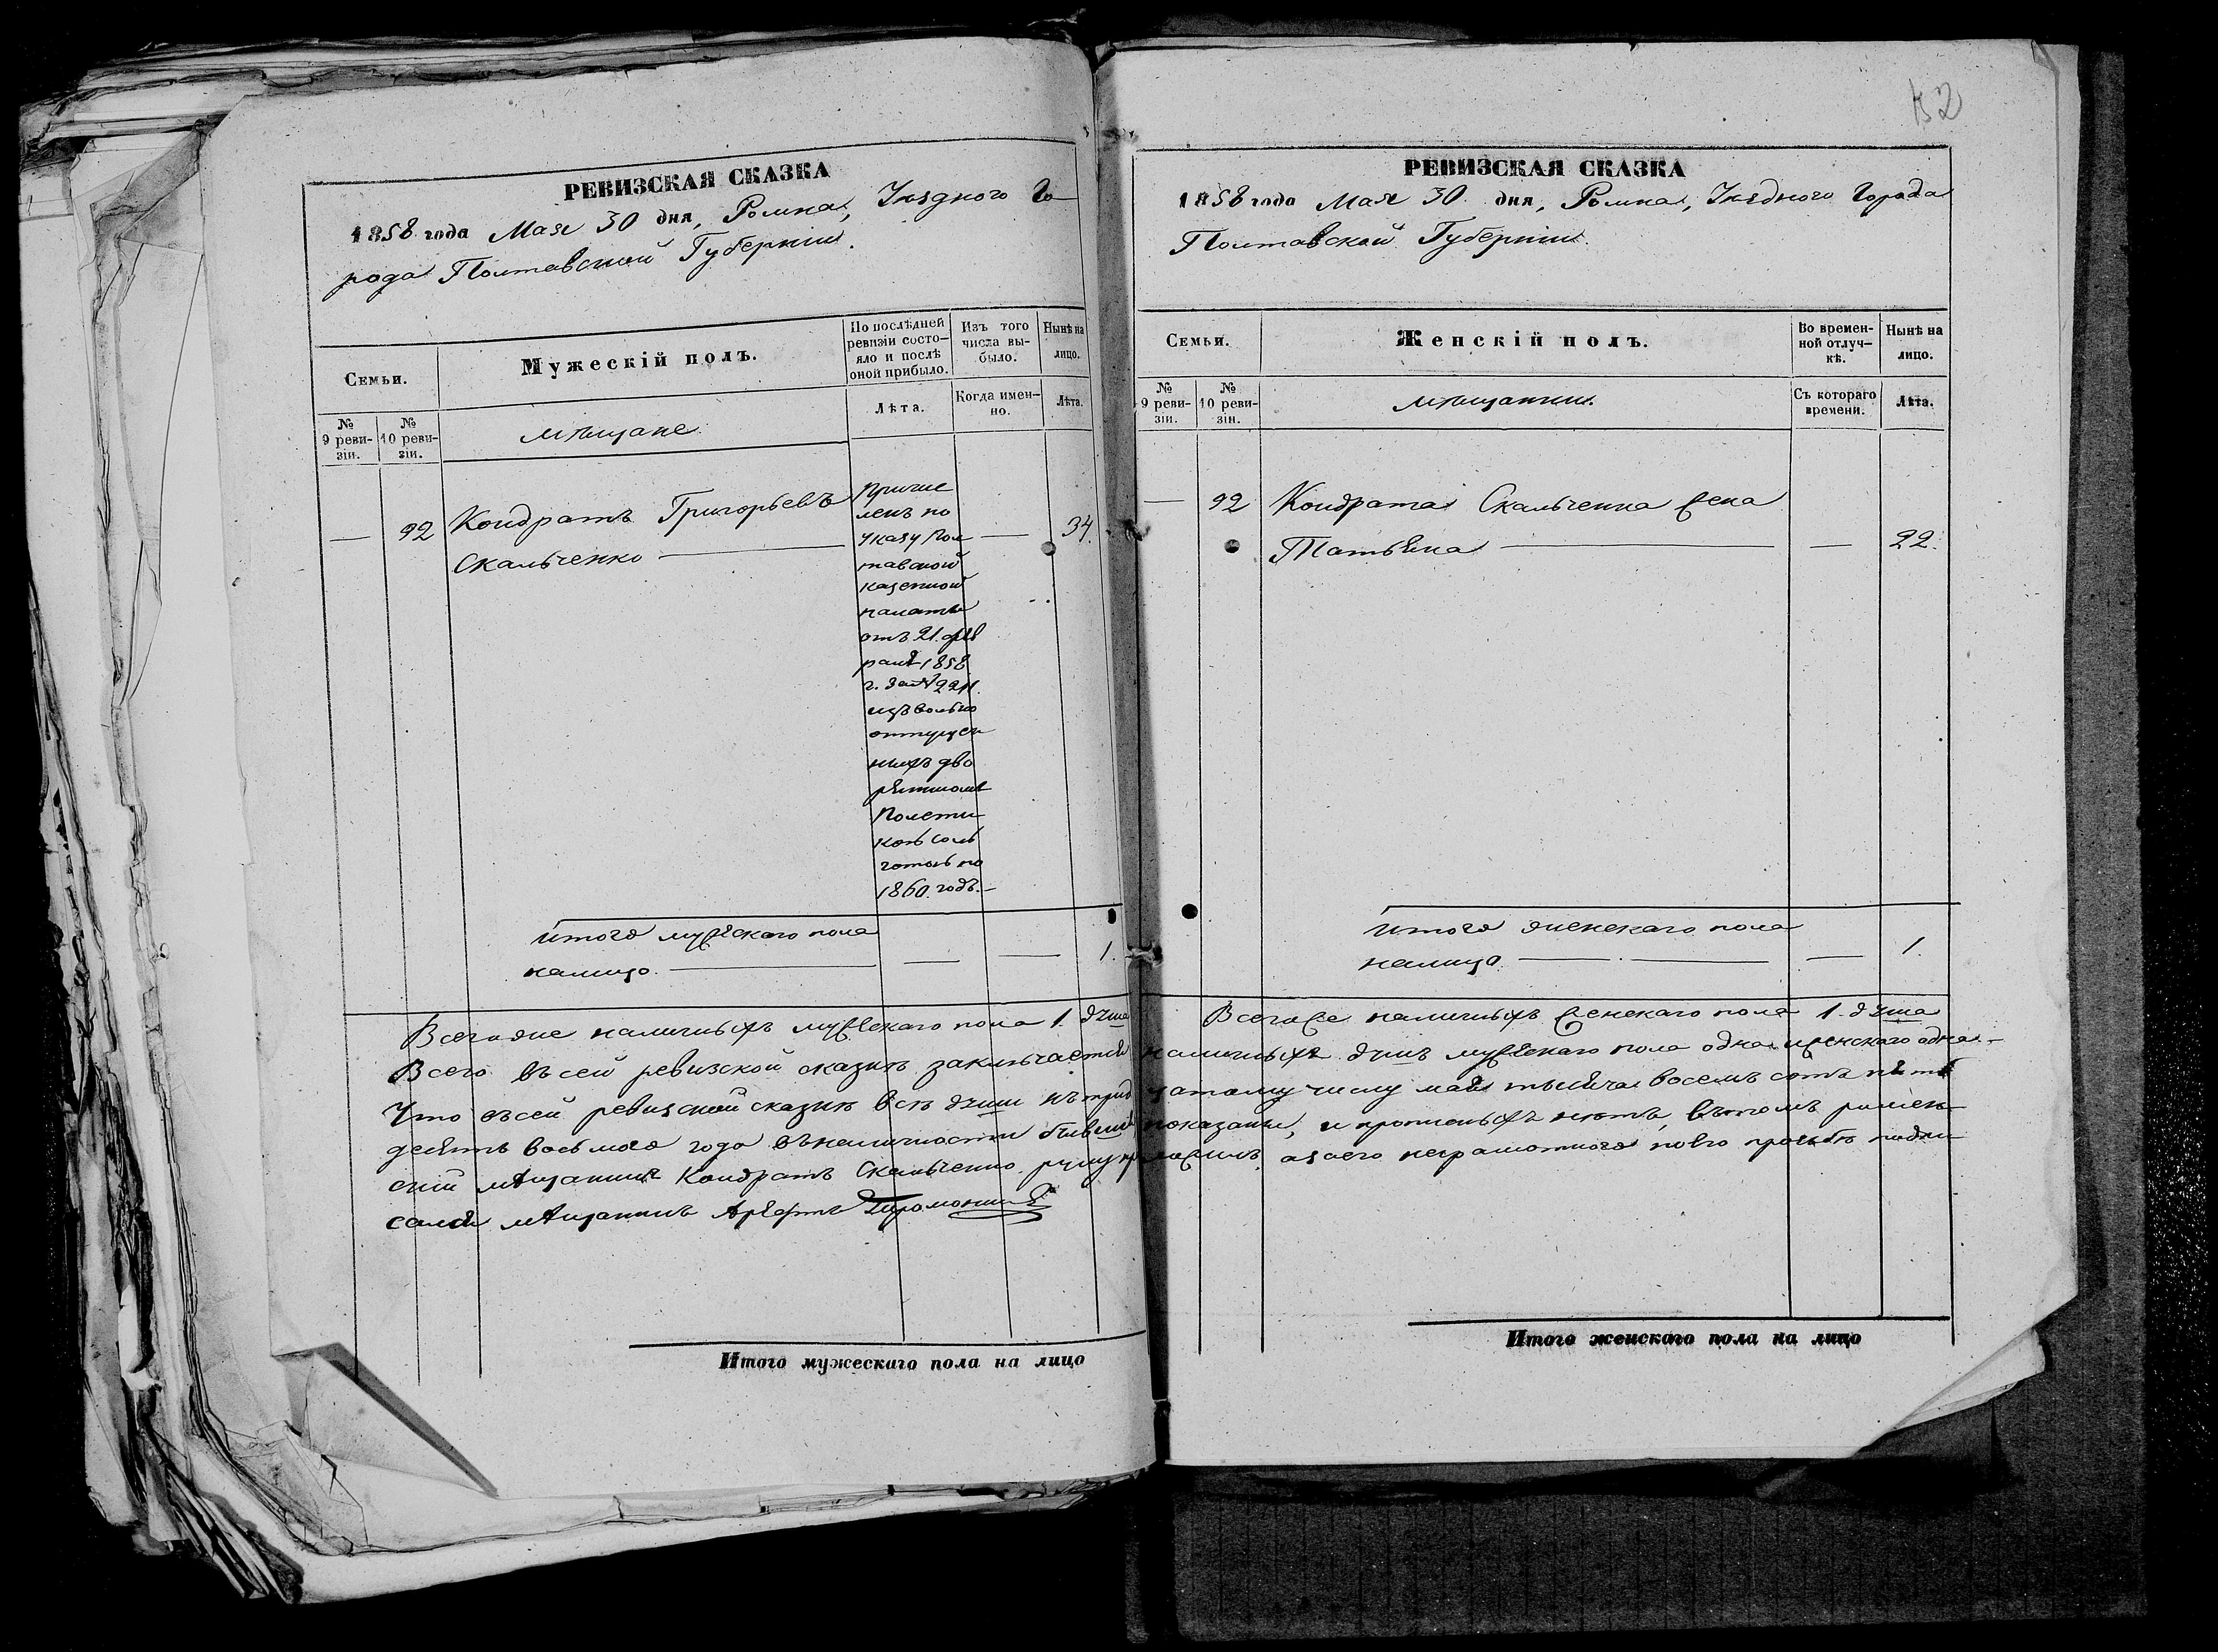 РЕВИЗСКАЯ СКАЗКА
1858 года Мая 30 дня, Ромна, Уѣзднаго Го-
рода Полтавской Губерніи.
Семьи.
Мужескій полъ.
По послѣдней ревизіи состояло и послѣ оной прибыло.
Изъ того числа выбыло.
Нынѣ на лицо.
№ 9 ревизіи.
№ 10 ревизіи.
мѣщане.
Лѣта.
Когда именно.
Лѣта.
—
92
Кондратъ Григорьевъ
Скальченко —
причис
ленъ по
указу Пол
тавской
казенной
палаты
отъ 21. фев
раля 1858
г. за №
изъ вольно
отпущен
ныхъ дво
Полети
съ ль
готою по
1860. годъ.—
—
34.
Итого мужескаго пола
налицо. — — — 1.
Всегоже наличныхъ мужескаго пола 1. душа
Итого мужескаго пола на лицо
52
РЕВИЗСКАЯ СКАЗКА
1858 года Мая 30. дня, Ромна, Уѣзднаго Города
Полтавской Губерніи.
Семьи.
Женскій полъ.
Во временной отлучкѣ.
Нынѣ на лицо.
№ 9 ревизіи.
№ 10 ревизіи.
мѣщанки.
Съ котораго времени.
Лѣта.
—
92
Кондрата Скальченка жена
Татьяна — — 22.
Итого женскаго пола
налицо. — — 1.
Всегоже наличныхъ женскаго пола 1. душа
Всего въ сей ревизской сказкѣ заключается наличныхъ душъ мужескаго пола одна и женскаго одна.—
Что въ сей ревизской сказкѣ всѣ души къ тридцатому числу мая тысяча восемъ сотъ пять
десятъ восьмого года въ наличности бывшія показаны, и прописныхъ нѣтъ, въ томъ ромен
скій мѣщанинъ Кондратъ Скальченко руку приложилъ, а за его неграмотного по его прозьбѣ подпи
сался мѣщанинъ
Итого женскаго пола на лицо